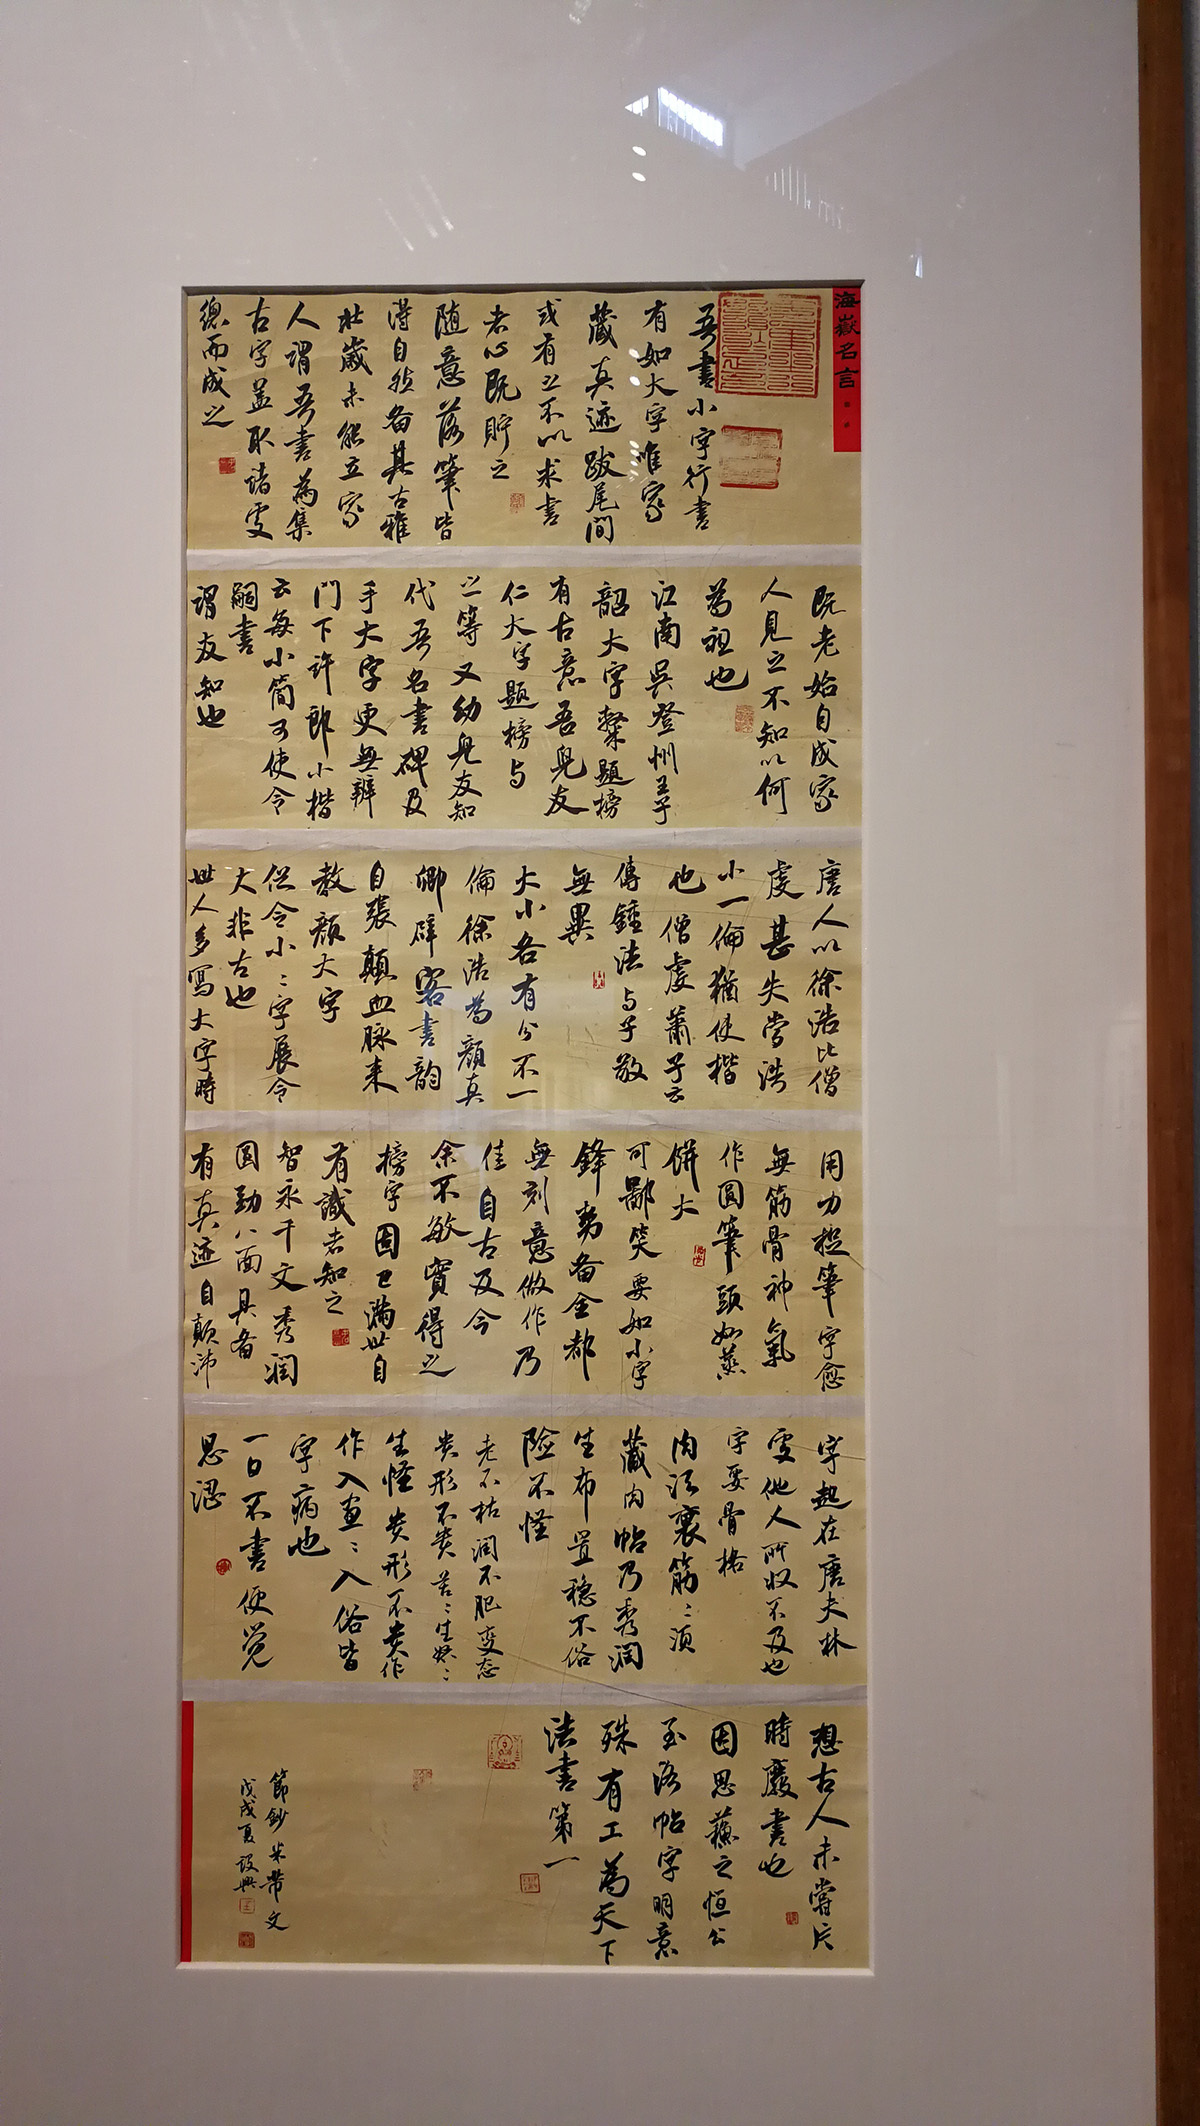 海嶽名言
吾書小字行書
有如大字唯家
藏真迹跋尾間
或有之不以求書
者心既貯之
随意落筆皆
得自然备其古雅
壮歲未能立家
人謂吾書為集
古字盖取諸
總而成之
既老始自成家
人見之不知以何
為祖也
江南吳登州王子
韶大字榜題榜
有古意吾兒友
仁大字題榜与
之等又幼兒友知
代吾名書碑及
手大字更無辨
門下许郎小楷
云每小简可使令
嗣書
謂友知也
唐人以徐浩比僧
虔甚失當浩
小一倫猶使楷
也僧虔蕭子云
傳鍾法与子敬
無異
大小各有分不一
倫徐浩為顔真
卿辟客書韵
自張顛血脉来
教顔大字
促令小小字展令
大非古也
世人多寫大字時
用力捉筆字愈
無筋骨神氣
作圓筆頭如蒸
餅大
可鄙笑要如小字
鋒勢备全都
無刻意做作乃
佳自古及今
余不敏實得之
榜字固已满世自
有識者知之
智永千文秀润
圓勁八面具备
有真迹自顛沛
字起在唐夫林
处他人所收不及也
字要骨格
肉須裹筋筋須
藏肉帖乃秀润
生布置穩不俗
险不怪
老不枯润不肥变态
贵形不贵苦苦生怒怒
生怪贵形不贵作
作入画画入俗皆
字病也
一日不書便觉
思涩
想古人未嘗片
時廢書也
因思蘇之恒公
至洛帖字明意
殊有工為天下
法書第一
節鈔米芾文
戊戌夏